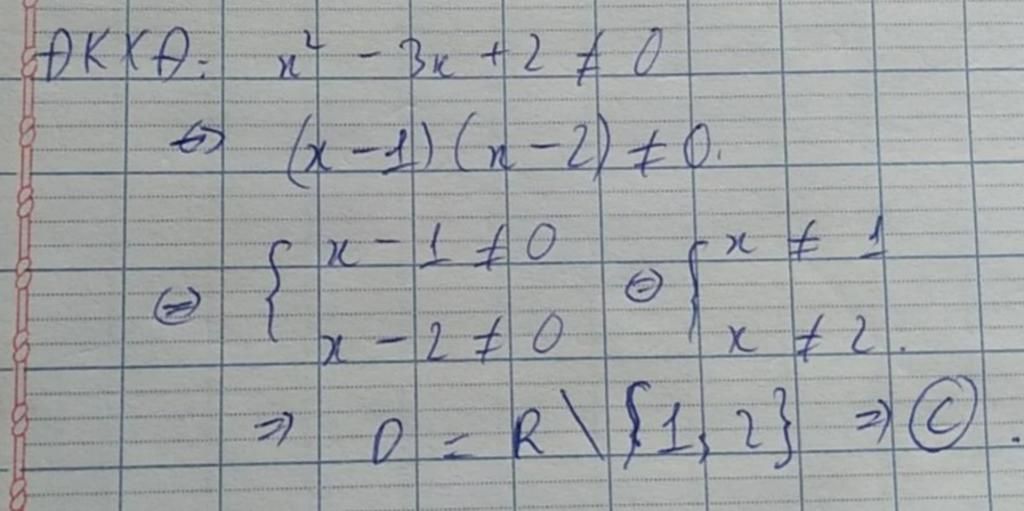 ĐKXĐ: x² - 3x + 2 ≠ 0
⇔ (x - 1)(x - 2) ≠ 0.
⇔ { x - 1 ≠ 0 ⇔ { x ≠ 1
x - 2 ≠ 0 x ≠ 2.
⇒ D = R \ {1, 2} ⇒ Ⓒ.